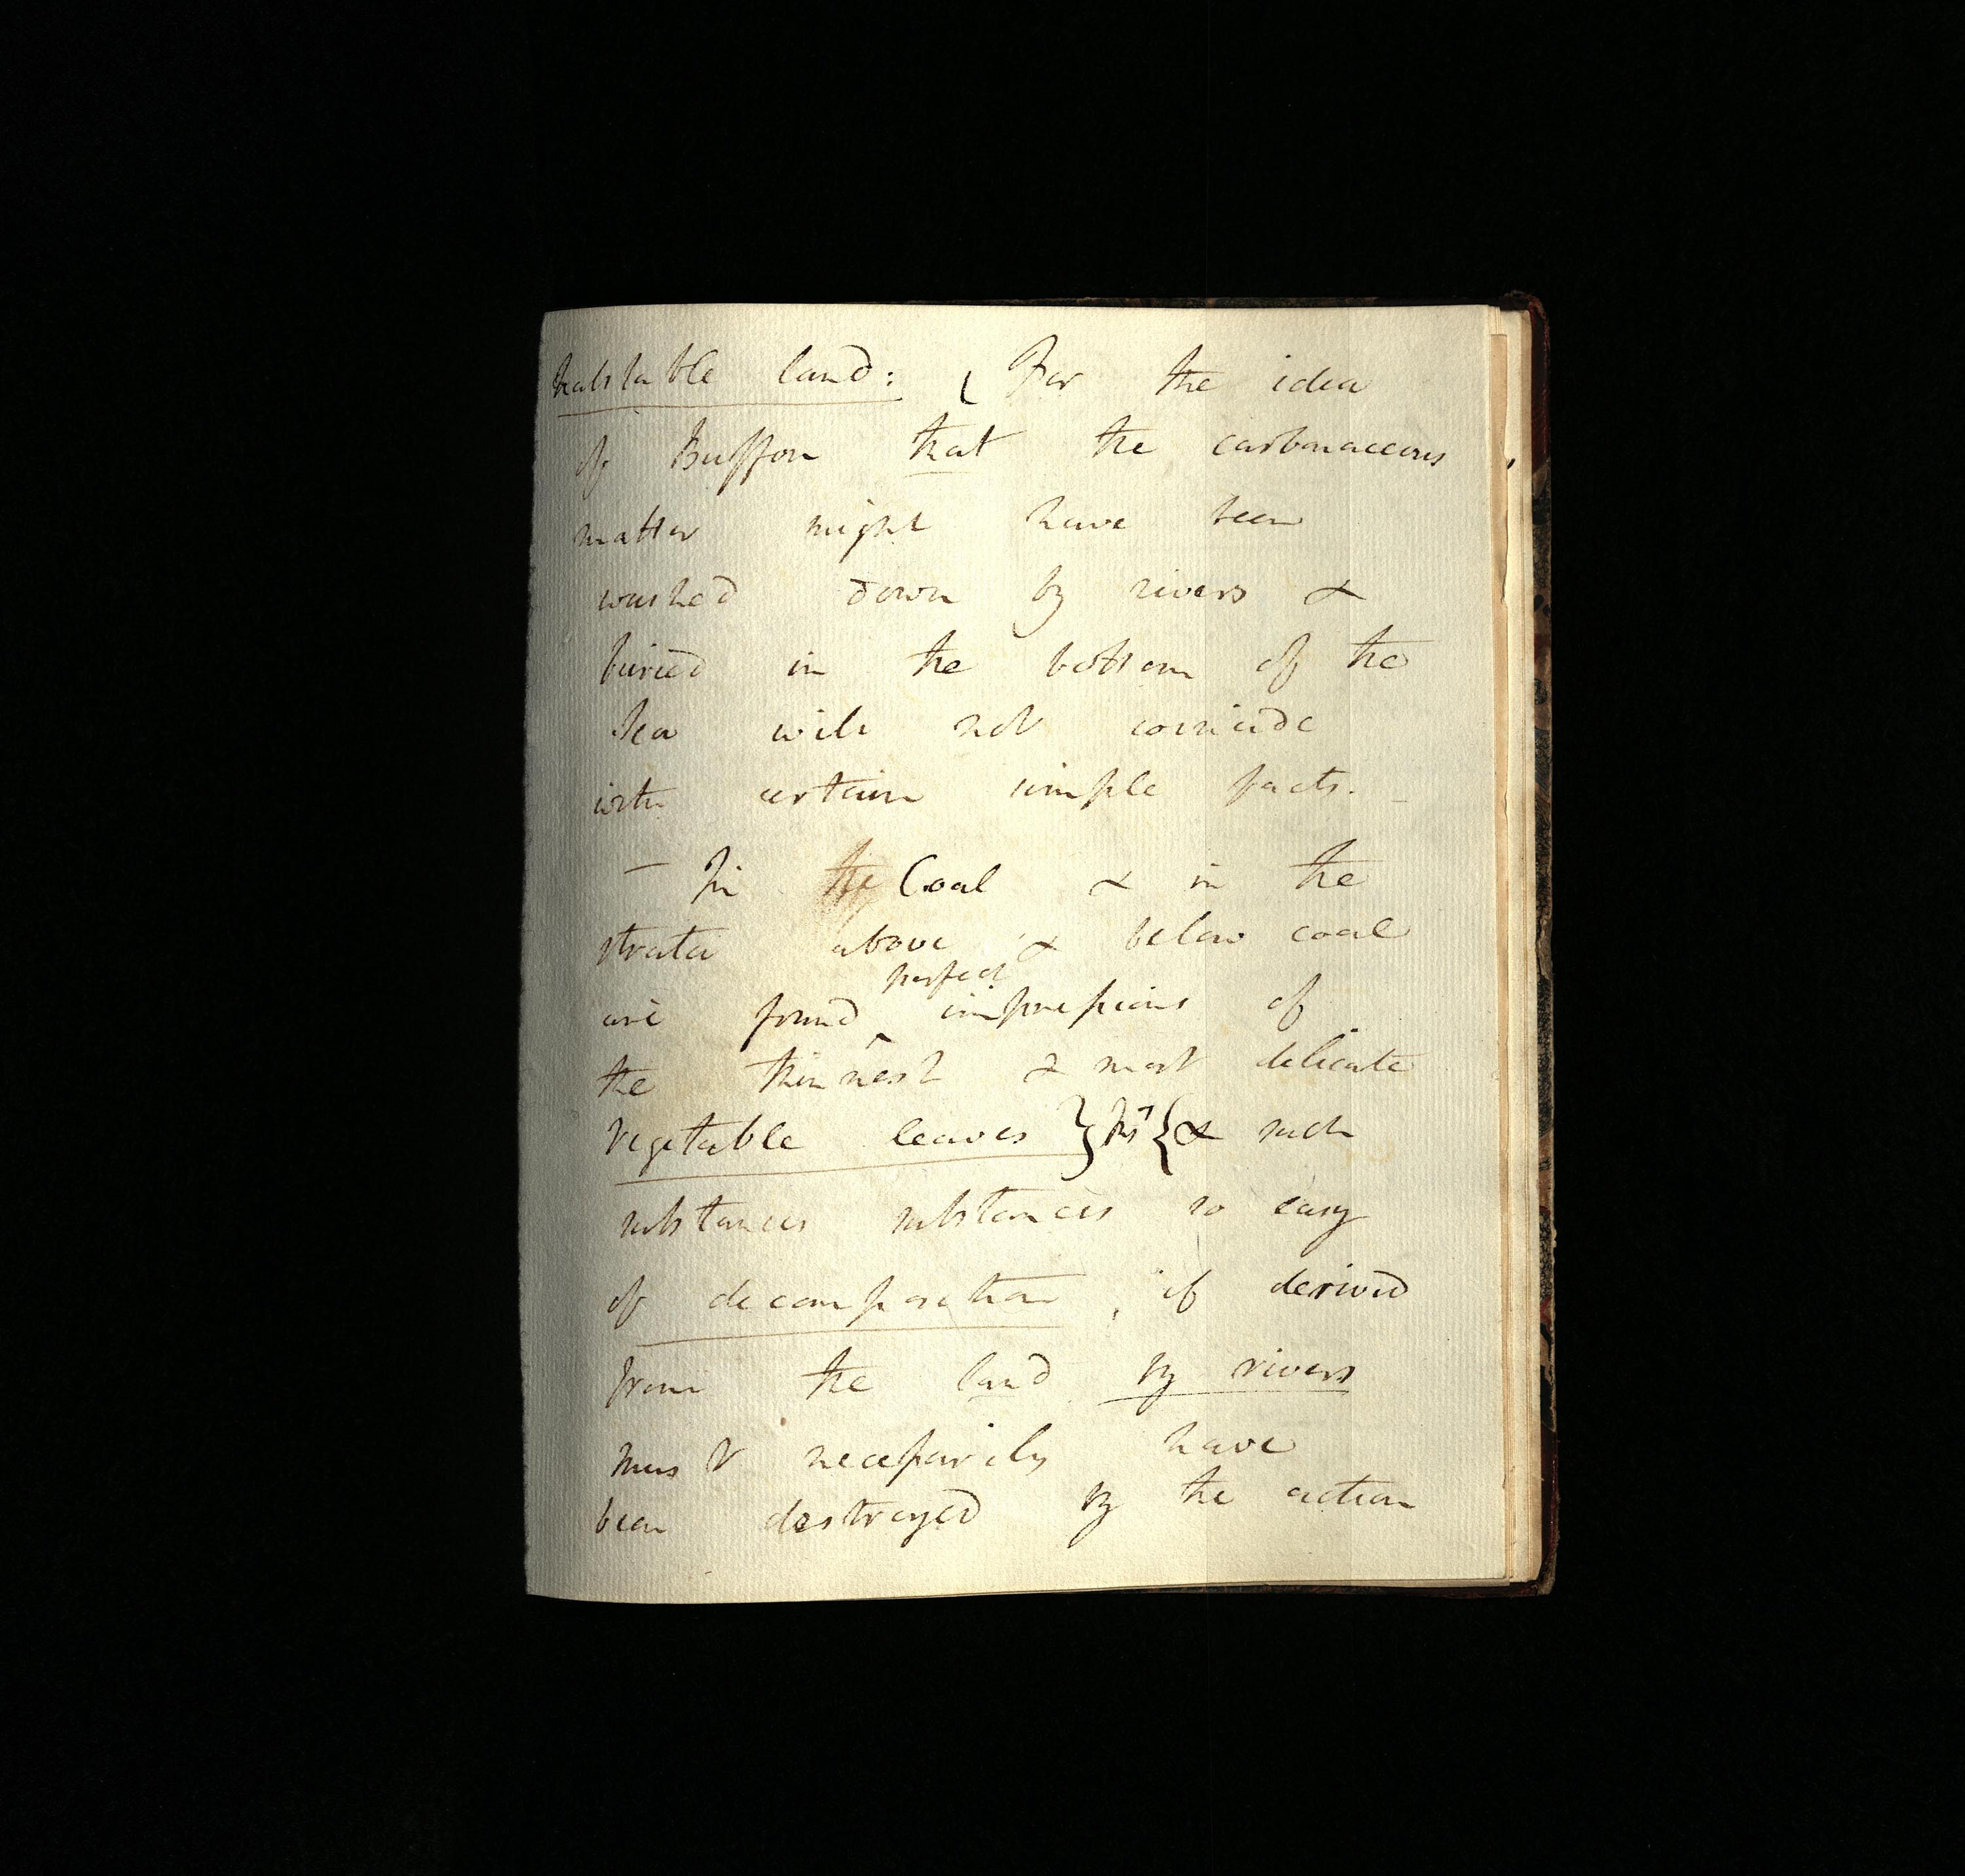 habitable land: ( For the idea
of Buffon that the carbonaceous
matter might have been
washed down by rivers &
buried in the bottom of the
Sea will not coincide
with certain simple facts. -
- In the Coal & in the
strata above & below coal
perfect
are found ^ impressions of
the thinnest & most delicate
vegetable leaves } { & such
substances substances so easy
of decomposition, if derived
from the land by rivers
must necessarily have
been destroyed by the action